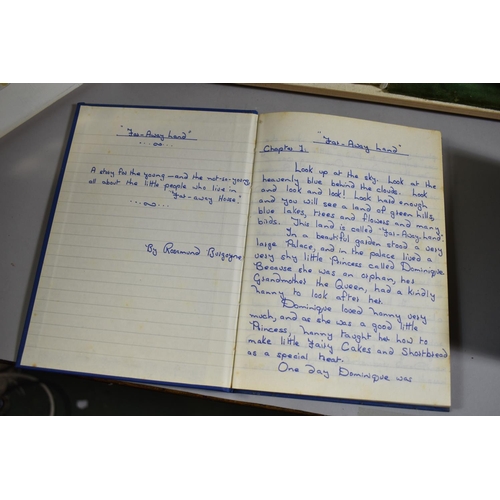 "Far-Away Land"
A story for the young—and the not-so-young
all about the little people who live in
"Far-away House"
By Rosamund Burgoyne
"Far-Away Land"
Chapter 1:
Look up at the sky. Look at the
heavenly blue behind the clouds. Look
and look and look! Look hard enough
and you will see a land of green hills,
blue lakes, trees and flowers and many
birds. This land is called "Far-Away Land".
In a beautiful garden stood a very
large Palace, and in the palace lived a
very shy little Princess called Dominique.
Because she was an orphan, her
Grandmother the Queen, had a kindly
Nanny to look after her.
Dominique loved Nanny very
much, and as she was a good little
Princess, Nanny taught her how to
make little Fairy Cakes and Shortbread
as a special treat.
One day Dominique was